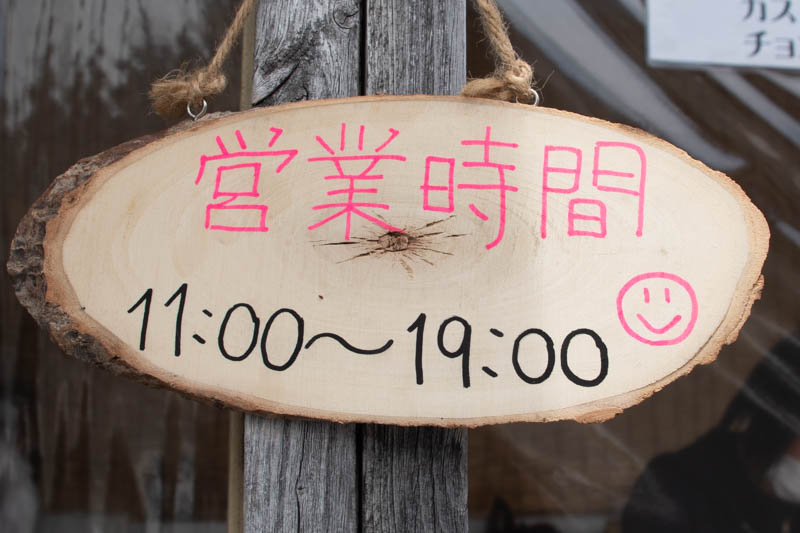 営業時間
11:00〜19:00
カス
チョ